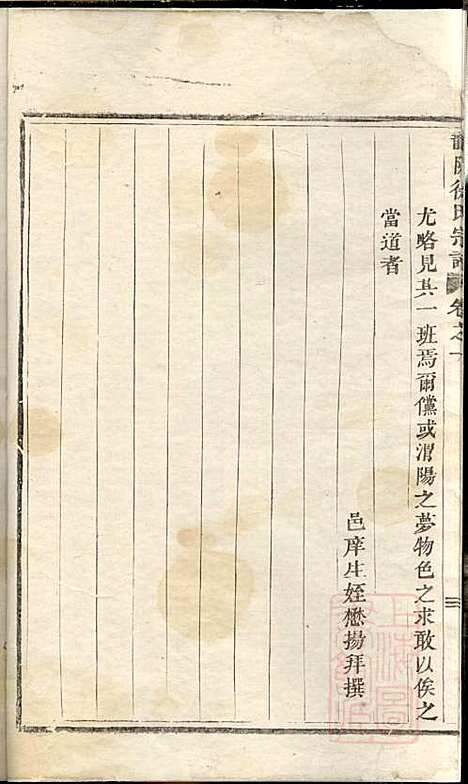 徐氏宗譜
卷之
尤略見其一班焉爾儻或渭陽之夢物色之求敢以俟之
當道者
邑庠生姪懋揚拜撰
三